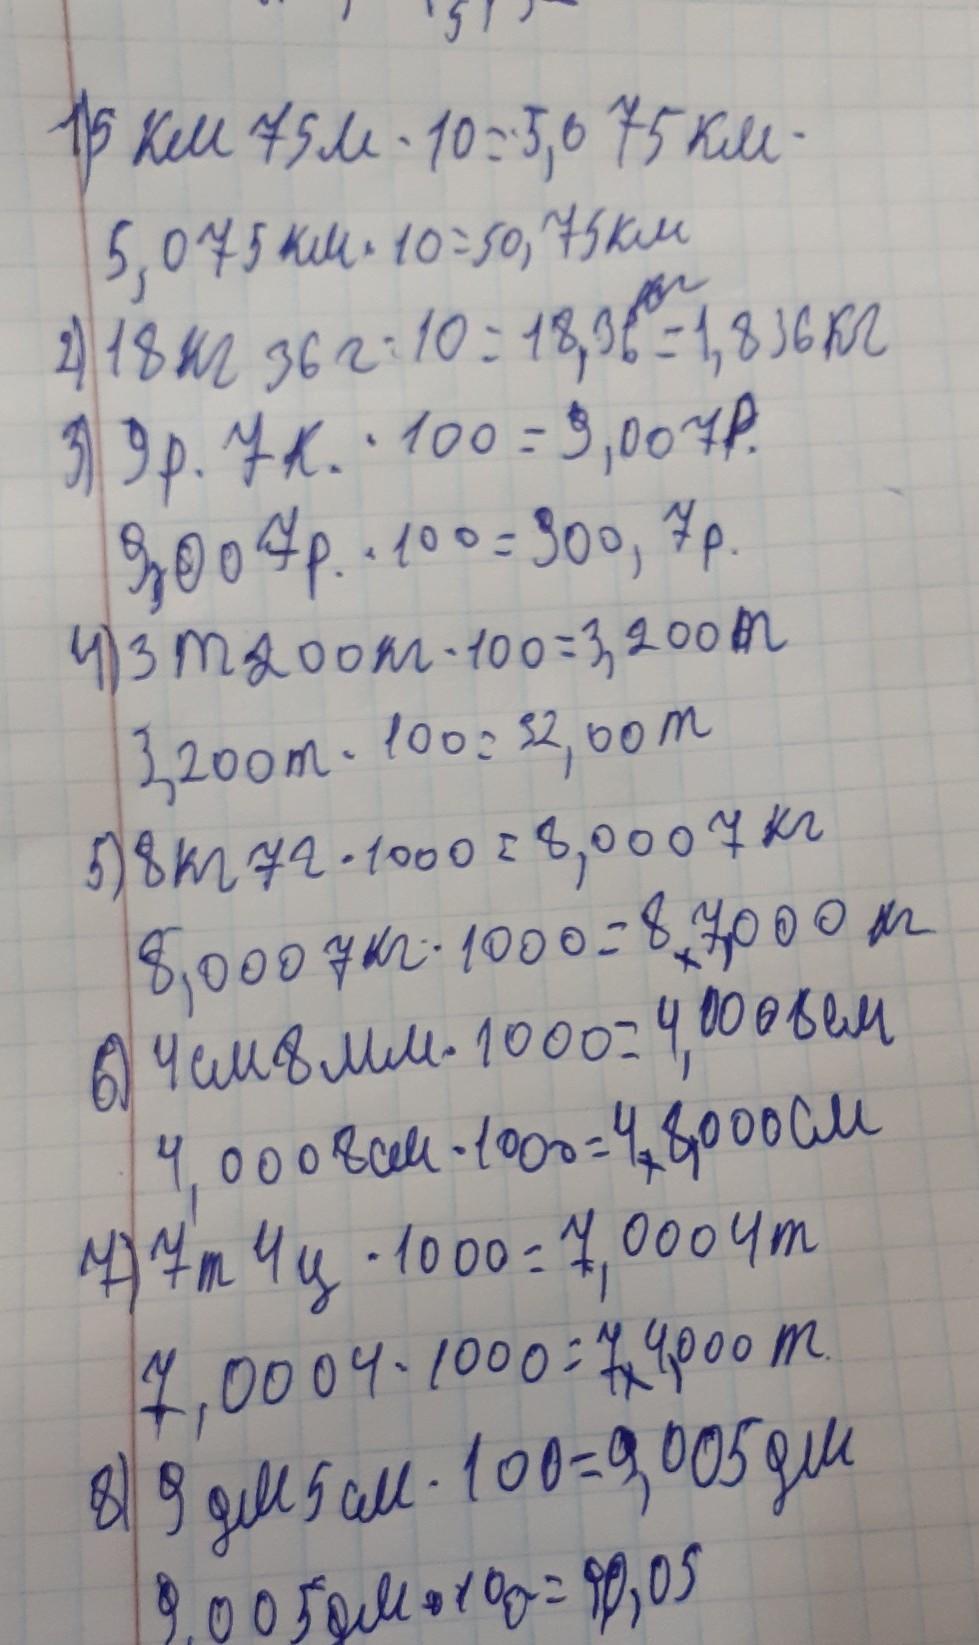 1) 5 км 75м · 10 = 5,075 км ·
5,075км · 10 = 50,75км
2) 18кг 36г : 10 = 18,36кг = 1,836кг
3) 9р. 7к. · 100 = 9,007р.
9,007р. · 100 = 900,7р.
4) 3т 200кг · 100 = 3,200т
3,200т · 100 = 32,00т
5) 8кг 7г · 1000 = 8,0007кг
8,0007кг · 1000 = 8,7,000 кг
6) 4см 8мм · 1000 = 4,0008см
4,0008см · 1000 = 4,8,000см
7) 7т 4ц · 1000 = 7,0004т
7,0004 · 1000 = 7,4,000 т
8) 9дм 5см · 100 = 9,005дм
9,005дм · 100 = 90,05